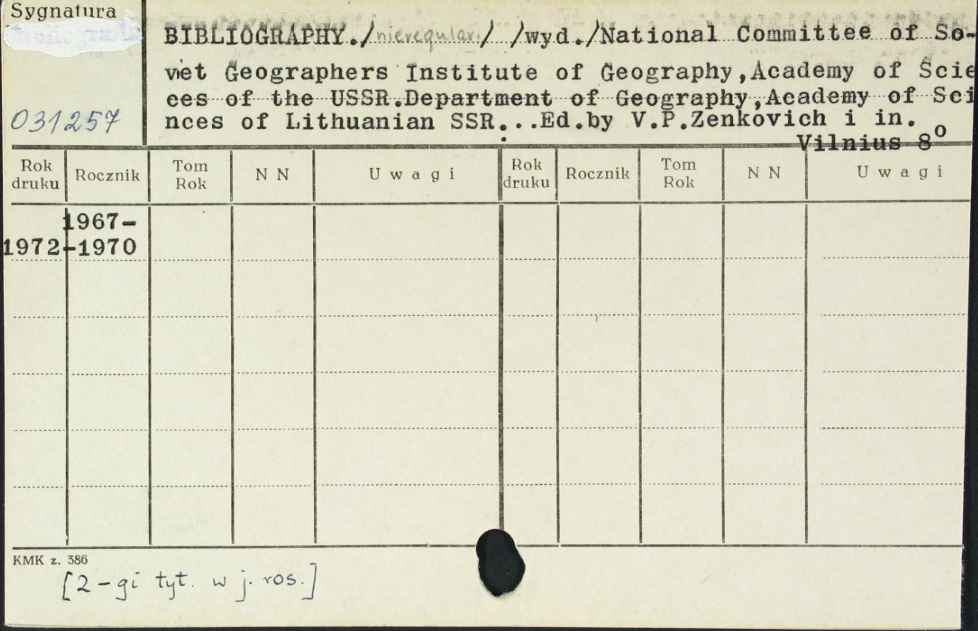 Sygnatura
031257
BIBLIOGRAPHY./nieregular./ /wyd./National Committee of So-
viet Geographers Institute of Geography,Academy of Scie
ces of the USSR.Department of Geography,Academy of Sci
nces of Lithuanian SSR...Ed.by V.P.Zenkovich i in.
Vilnius 8º
Rok druku Rocznik Tom Rok N N Uwagi Rok druku Rocznik Tom Rok N N Uwagi
1967-
1972-1970
KMK z. 386
[2-gi tyt. w j. ros.]